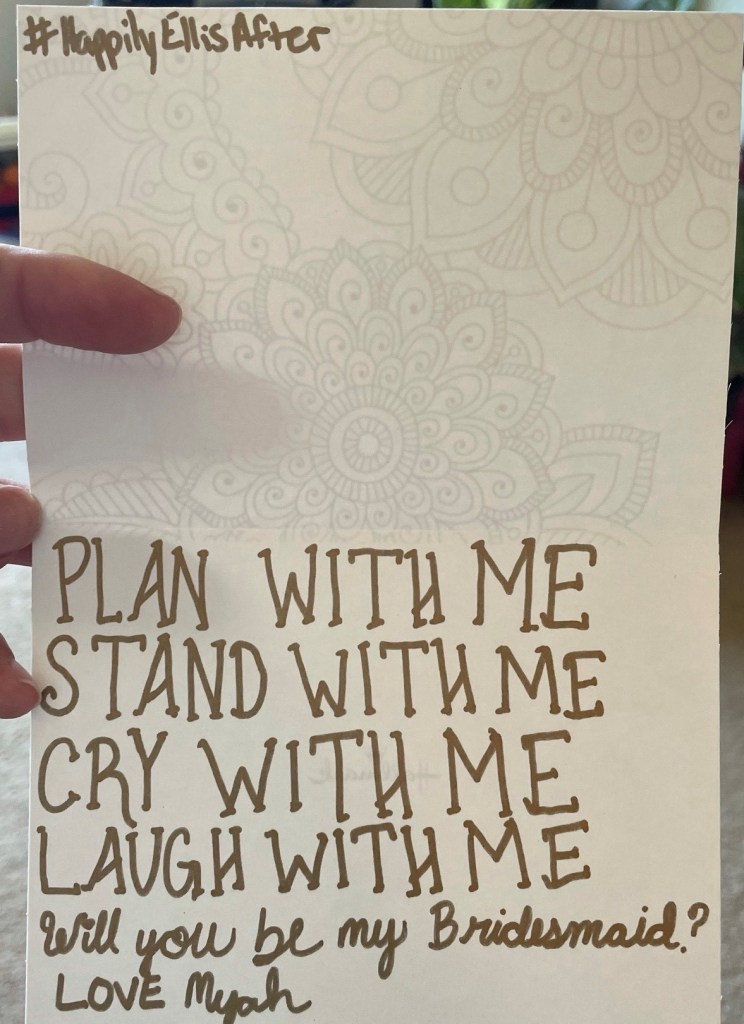 #HappilyEllisAfter
PLAN WITH ME
STAND WITH ME
CRY WITH ME
LAUGH WITH ME
Will you be my Bridesmaid?
LOVE Myah